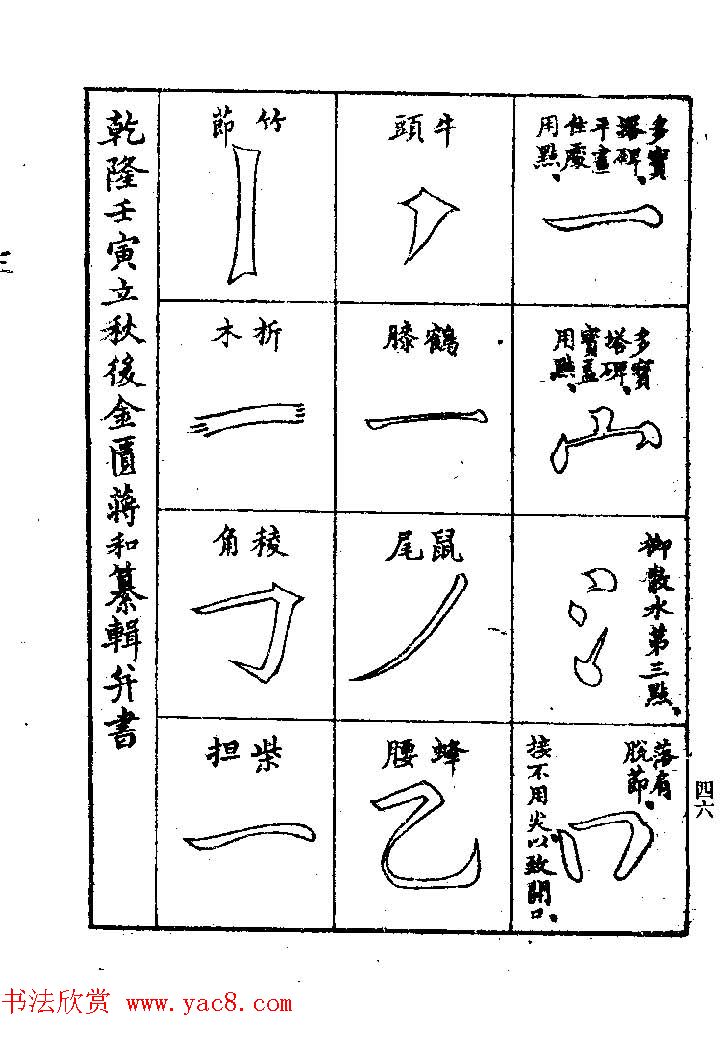 多寶
塔碑、
平畫
住處
用點、
多寶
塔碑、
寶盖
用點、
柳散水第三點、
落有
脫節、
接不用尖以致開口、
牛頭
鶴膝
鼠尾
蜂腰
竹節
折木
稜角
柴担
乾隆壬寅立秋後金匱蔣和纂輯并書
四六
书法欣赏 www.yac8.com